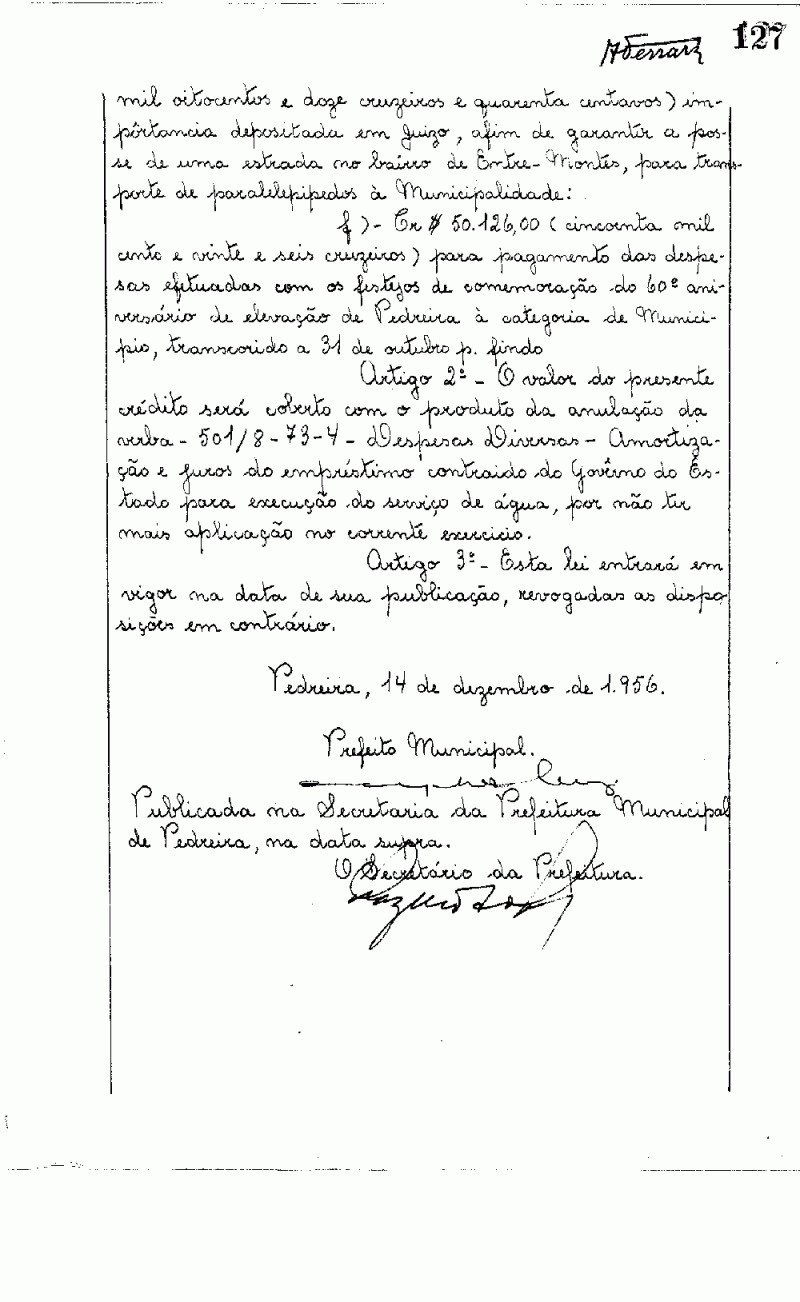 127
mil oitocentos e doze cruzeiros e quarenta centavos) im-
pôrtancia depositada em Juizo, afim de garantir a pos-
se de uma estrada no bairro de Entre-Montes, para trans-
porte de paralelepipedos à Municipalidade:
f)- Cr $ 50.126,00 (cincoenta mil
cento e vinte e seis cruzeiros) para pagamento das despe-
sas efetuadas com os festejos de comemoração do 60º ani-
versário de elevação de Pedreira à categoria de Munici-
pio, transcorido a 31 de outubro p. findo
Artigo 2º - O valor do presente
crédito será coberto com o produto da anulação da
verba - 501/8-73-4 - Despesas Diversas - Amortiza-
ção e juros do empréstimo contraido do Govêrno do Es-
tado para execução do serviço de água, por não ter
mais aplicação no corrente exercicio.
Artigo 3º - Esta lei entrará em
vigor na data de sua publicação, revogadas as dispo
sições em contrário.
Pedreira, 14 de dezembro de 1.956.
Prefeito Municipal.
Publicada na Secretaria da Prefeitura Municipal
de Pedreira, na data supra.
O Secretário da Prefeitura.